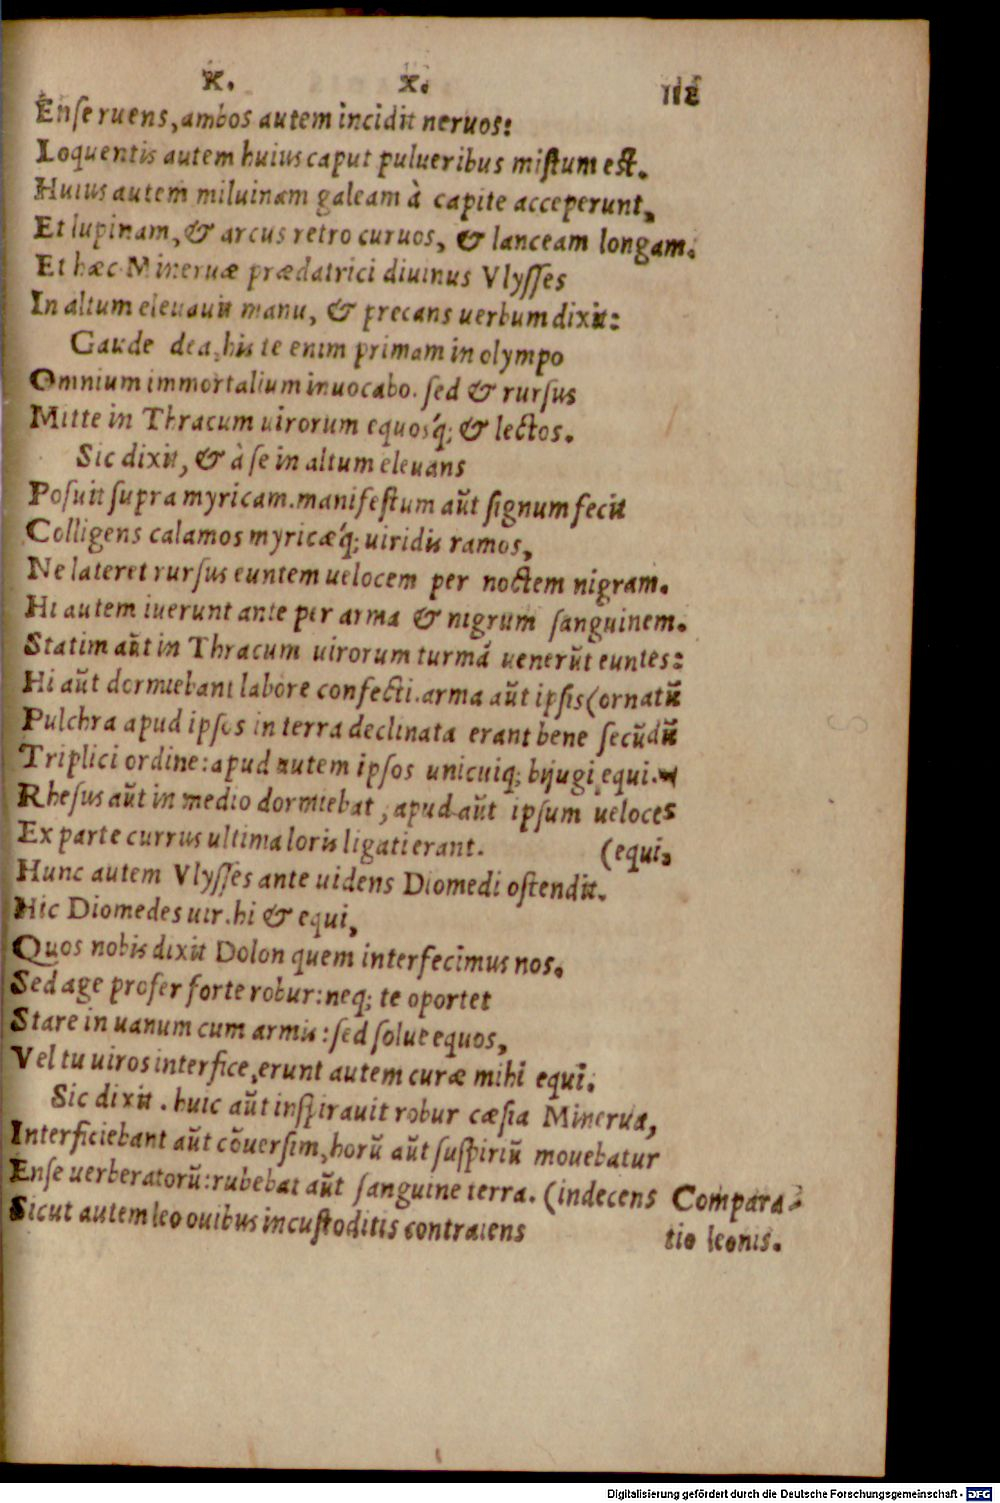 K. X. 112
Ense ruens, ambos autem incidit neruos:
Loquentis autem huius caput pulueribus mistum est.
Huius autem miluinam galeam à capite acceperunt,
Et lupinam, & arcus retro curuos, & lanceam longam.
Et hæc Mineruæ prædatrici diuinus Vlysses
In altum eleuauit manu, & precans uerbum dixit:
Gaude dea, his te enim primam in olympo
Omnium immortalium inuocabo. sed & rursus
Mitte in Thracum uirorum equosq́; & lectos.
Sic dixit, & à se in altum eleuans
Posuit supra myricam. manifestum aũt signum fecit
Colligens calamos myricæq́; uiridis ramos,
Ne lateret rursus euntem uelocem per noctem nigram.
Hi autem iuerunt ante per arma & nigrum sanguinem.
Statim aũt in Thracum uirorum turmã uenerũt euntes:
Hi aũt dormiebant labore confecti. arma aũt ipsis (ornatũ
Pulchra apud ipsos in terra declinata erant bene secũdũ
Triplici ordine: apud autem ipsos unicuiq; bijugi equi.
Rhesus aũt in medio dormiebat, apud aũt ipsum ueloces
Ex parte currus ultima loris ligati erant. (equi,
Hunc autem Vlysses ante uidens Diomedi ostendit.
Hic Diomedes uir. hi & equi,
Quos nobis dixit Dolon quem interfecimus nos.
Sed age profer forte robur: neq; te oportet
Stare in uanum cum armis: sed solue equos,
Vel tu uiros interfice, erunt autem curæ mihi equi.
Sic dixit. huic aũt inspirauit robur cæsia Minerua,
Interficiebant aũt cõuersim, horũ aũt suspiriũ mouebatur
Ense uerberatorũ: rubebat aũt sanguine terra. (indecens Compara-
Sicut autem leo ouibus incustoditis contraiens tio leonis.
Digitalisierung gefördert durch die Deutsche Forschungsgemeinschaft - DFG